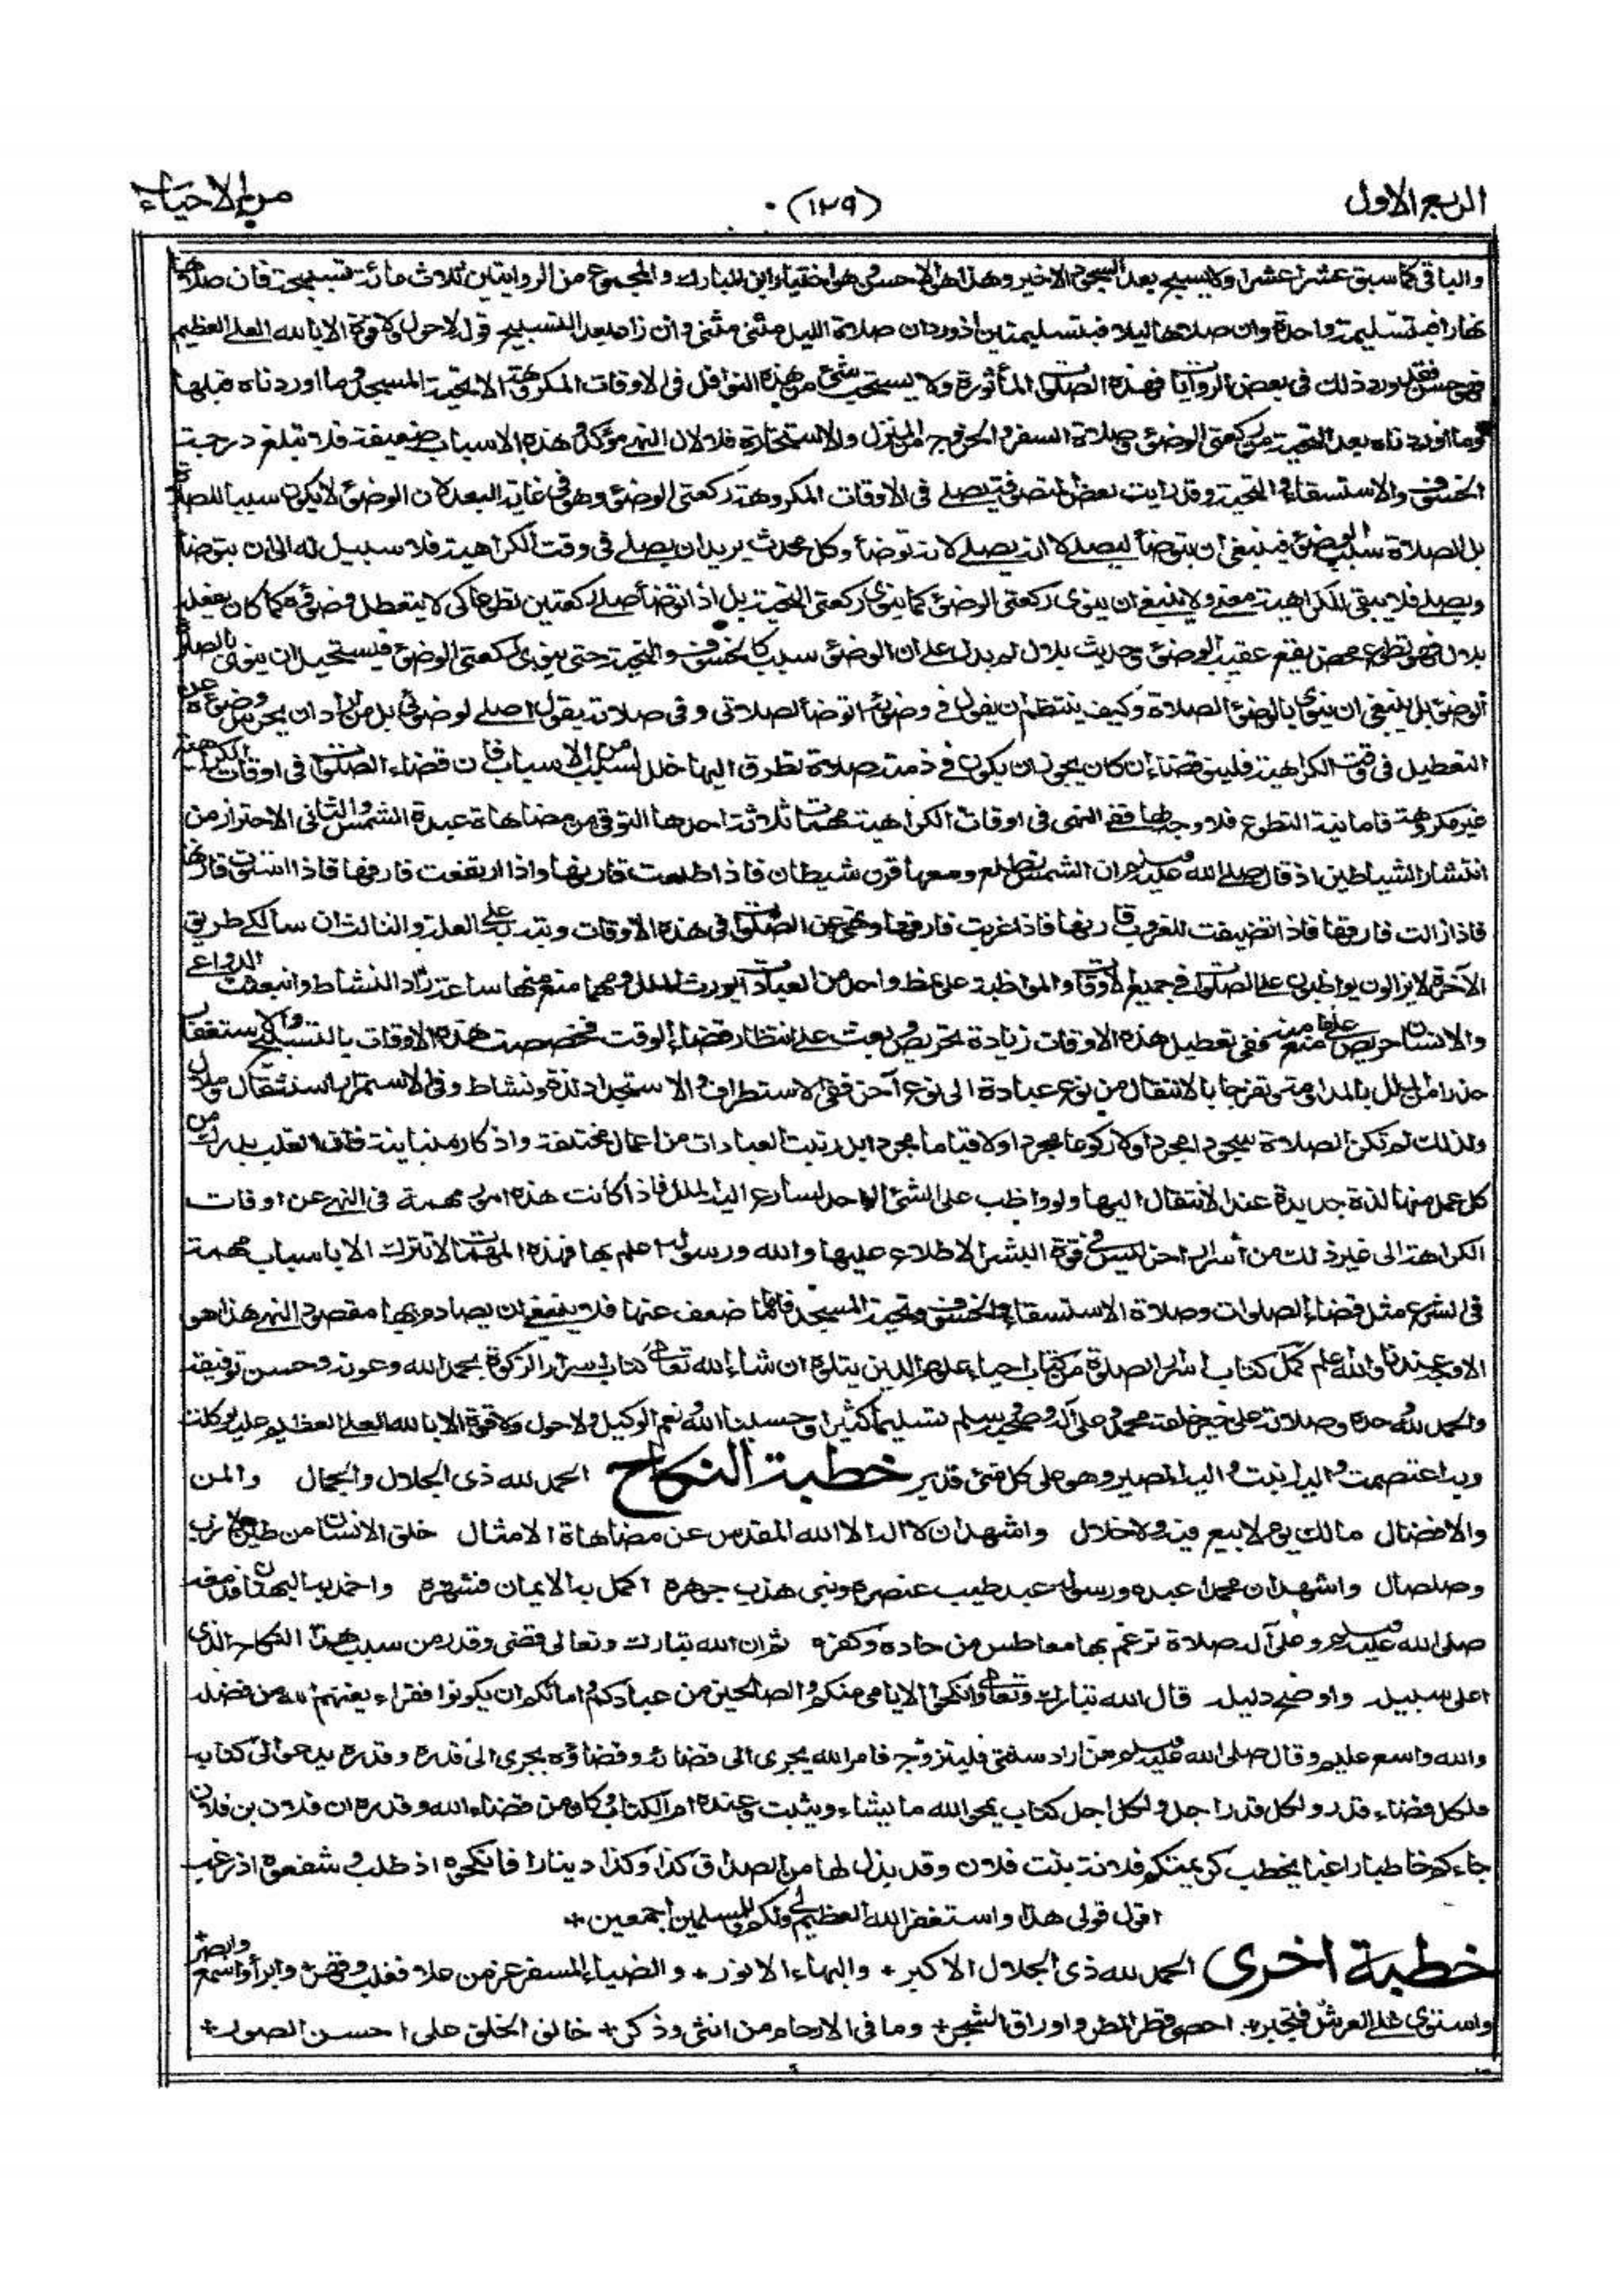 الربع الاول (١٣٩) من الاحياء
والباقي كما سبق عشرا عشرا ولا يسبح بعد السجود الاخير وهذا هو الاحسن وهو اختيار ابن المبارك والمجموع من الروايتين ثلاث مائة تسبيحة فان صلاها
نهارا فبتسليمة واحدة وان صلاها ليلا فبتسليمتين اذ ورد ان صلاة الليل مثنى مثنى وان زاد بعد التسبيح قوله لاحول ولا قوة الا بالله العلي العظيم
فهو حسن فقد ورد ذلك في بعض الروايات فهذه الصلوات المأثورة ولا يستحب شئ من هذه النوافل في الاوقات المكروهة الا تحية المسجد وما اوردناه قبلها
وما اوردناه بعد التحية من ركعتي الوضوء وصلاة السفر والخروج من المنزل والاستخارة فلا لان النهي مؤكد وهذه الاسباب ضعيفة فلا تبلغ درجة
الخسوف والاستسقاء والتحية وقد رايت بعض المتصوفة يصلي في الاوقات المكروهة ركعتي الوضوء وهو في غاية البعد لان الوضوء لا يكون سببا للصلاة
بل الصلاة سبب الوضوء فينبغي ان يتوضأ ليصلي لا انه يصلي لانه توضأ وكل محدث يريد ان يصلي في وقت الكراهية فلا سبيل له الى ان يتوضأ
ويصلي فلا يبقى للكراهية معنى ولا ينبغي ان ينوي ركعتي الوضوء كما ينوي ركعتي التحية بل اذا توضأ صلى ركعتين تطوعا كي لا يتعطل وضوئه كما كان يفعله
بلال فهو تطوع محض يقع عقيب الوضوء وحديث بلال لم يدل على ان الوضوء سبب كالخسوف والتحية حتى ينوي ركعتي الوضوء فيستحيل ان ينوي بالصلاة
الوضوء بل ينبغي ان ينوي بالوضوء الصلاة وكيف ينتظم ان يقول في وضوئه اتوضأ لصلاتي وفي صلاته يقول اصلي لوضوئي بل من اراد ان يحرس وضوءه عن
التعطيل في وقت الكراهية فلينو قضاء ان كان يجوز ان يكون في ذمته صلاة تطرق اليها خلل لسبب من الاسباب فان قضاء الصلوات في اوقات الكراهية
غير مكروهة فاما نية التطوع فلا وجه لها ففي النهي في اوقات الكراهية مهمات ثلاثة احدها التوقي من مضاهاة عبدة الشمس والثاني الاحتراز من
انتشار الشياطين اذ قال صلى الله عليه وسلم ان الشمس لتطلع ومعها قرن شيطان فاذا طلعت قارنها واذا ارتفعت فارقها فاذا استوت قارنها
فاذا زالت فارقها فاذا تضيفت للغروب قارنها فاذا غربت فارقها ونهى عن الصلوات في هذه الاوقات ونبه به على العلة والثالث ان سالكي طريق
الآخرة لا يزالون يواظبون على الصلوات في جميع الاوقات والمواظبة على نمط واحد من العبادات يورث الملل ومهما منع منها ساعة زاد النشاط وانبعثت الدواعي
والانسان حريص على ما منع منه ففي تعطيل هذه الاوقات زيادة تحريض وبعث على انتظار قضاء الوقت فخصصت هذه الاوقات بالتسبيح والاستغفار
حذرا من الملل بالمداومة وتفرجا بالانتقال من نوع عبادة الى نوع آخر ففي الاستطراف والاستجداد لذة ونشاط وفي الاستمرار استثقال وملال
ولذلك لم تكن الصلاة سجودا مجردا ولا ركوعا مجردا ولا قياما مجردا بل رتبت العبادات من اعمال مختلفة واذكار متباينة فان القلب يدرك من
كل عمل منها لذة جديدة عند الانتقال اليها ولو واظب على الشئ الواحد لسارع اليه الملل فاذا كانت هذه امورا مهمة في النهي عن اوقات
الكراهة الى غير ذلك من أسرار اخر ليس في قوة البشر الاطلاع عليها والله ورسوله اعلم بها فهذه المهمات لا تترك الا باسباب مهمة
في الشرع مثل قضاء الصلوات وصلاة الاستسقاء والخسوف وتحية المسجد فاما ما ضعف عنها فلا ينبغي ان يصادم بها مقصود النهي هذا هو
الاوجه عندنا والله اعلم كمل كتاب اسرار الصلوة من كتاب احياء علوم الدين يتلوه ان شاء الله تعالى كتاب اسرار الزكوة بحمد الله وعونه وحسن توفيقه
والحمد لله وحده وصلاته على خير خلقه محمد وعلى آله وصحبه وسلم تسليما كثيرا وحسبنا الله ونعم الوكيل ولا حول ولا قوة الا بالله العلي العظيم عليه توكلت
وبه اعتصمت واليه انبت واليه المصير وهو على كل شئ قدير خطبة النكاح الحمد لله ذي الجلال والجمال والمن
والافضال مالك يوم لا بيع فيه ولا خلال واشهد ان لا اله الا الله المقدس عن مضاهاة الامثال خلق الانسان من طين لازب
وصلصال واشهد ان محمدا عبده ورسوله عبد طيب عنصره ونبي هذب جوهره اكمل به الايمان فنشره واخمد به البهتان
صلى الله عليه وسلم وعلى آله صلاة ترغم بها معاطس من حاده وكفره ثم ان الله تبارك وتعالى قضى وقدر من سبب هذا النكاح الذي
اعلى سبيل واوضح دليل قال الله تبارك وتعالى وانكحوا الايامى منكم والصالحين من عبادكم وامائكم ان يكونوا فقراء يغنهم الله من فضله
والله واسع عليم وقال صلى الله عليه وسلم من اراد سنتي فليتزوج فامر الله يجري الى قضائه وقضاؤه يجري الى قدره وقدره يدعو الى كتابه
فلكل قضاء قدر ولكل قدر اجل ولكل اجل كتاب يمحو الله ما يشاء ويثبت وعنده ام الكتاب وكان من قضاء الله وقدره ان فلان بن فلان
جاءكم خاطبا راغبا يخطب كريمتكم فلانة بنت فلان وقد بذل لها من الصداق كذا وكذا دينارا فانكحوه اذ طلب وشفعوه اذ رغب
اقول قولي هذا واستغفر الله العظيم لي ولكم وللمسلمين اجمعين +
خطبة اخرى الحمد لله ذي الجلال الاكبر + والبهاء الانور + والضياء المسفر عز من علا فغلب وقهر + وابرأ واسمع وابصر +
واستوى على العرش فتجبر + احصى قطر المطر واوراق الشجر + وما في الارحام من انثى وذكر + خالق الخلق على احسن الصور +